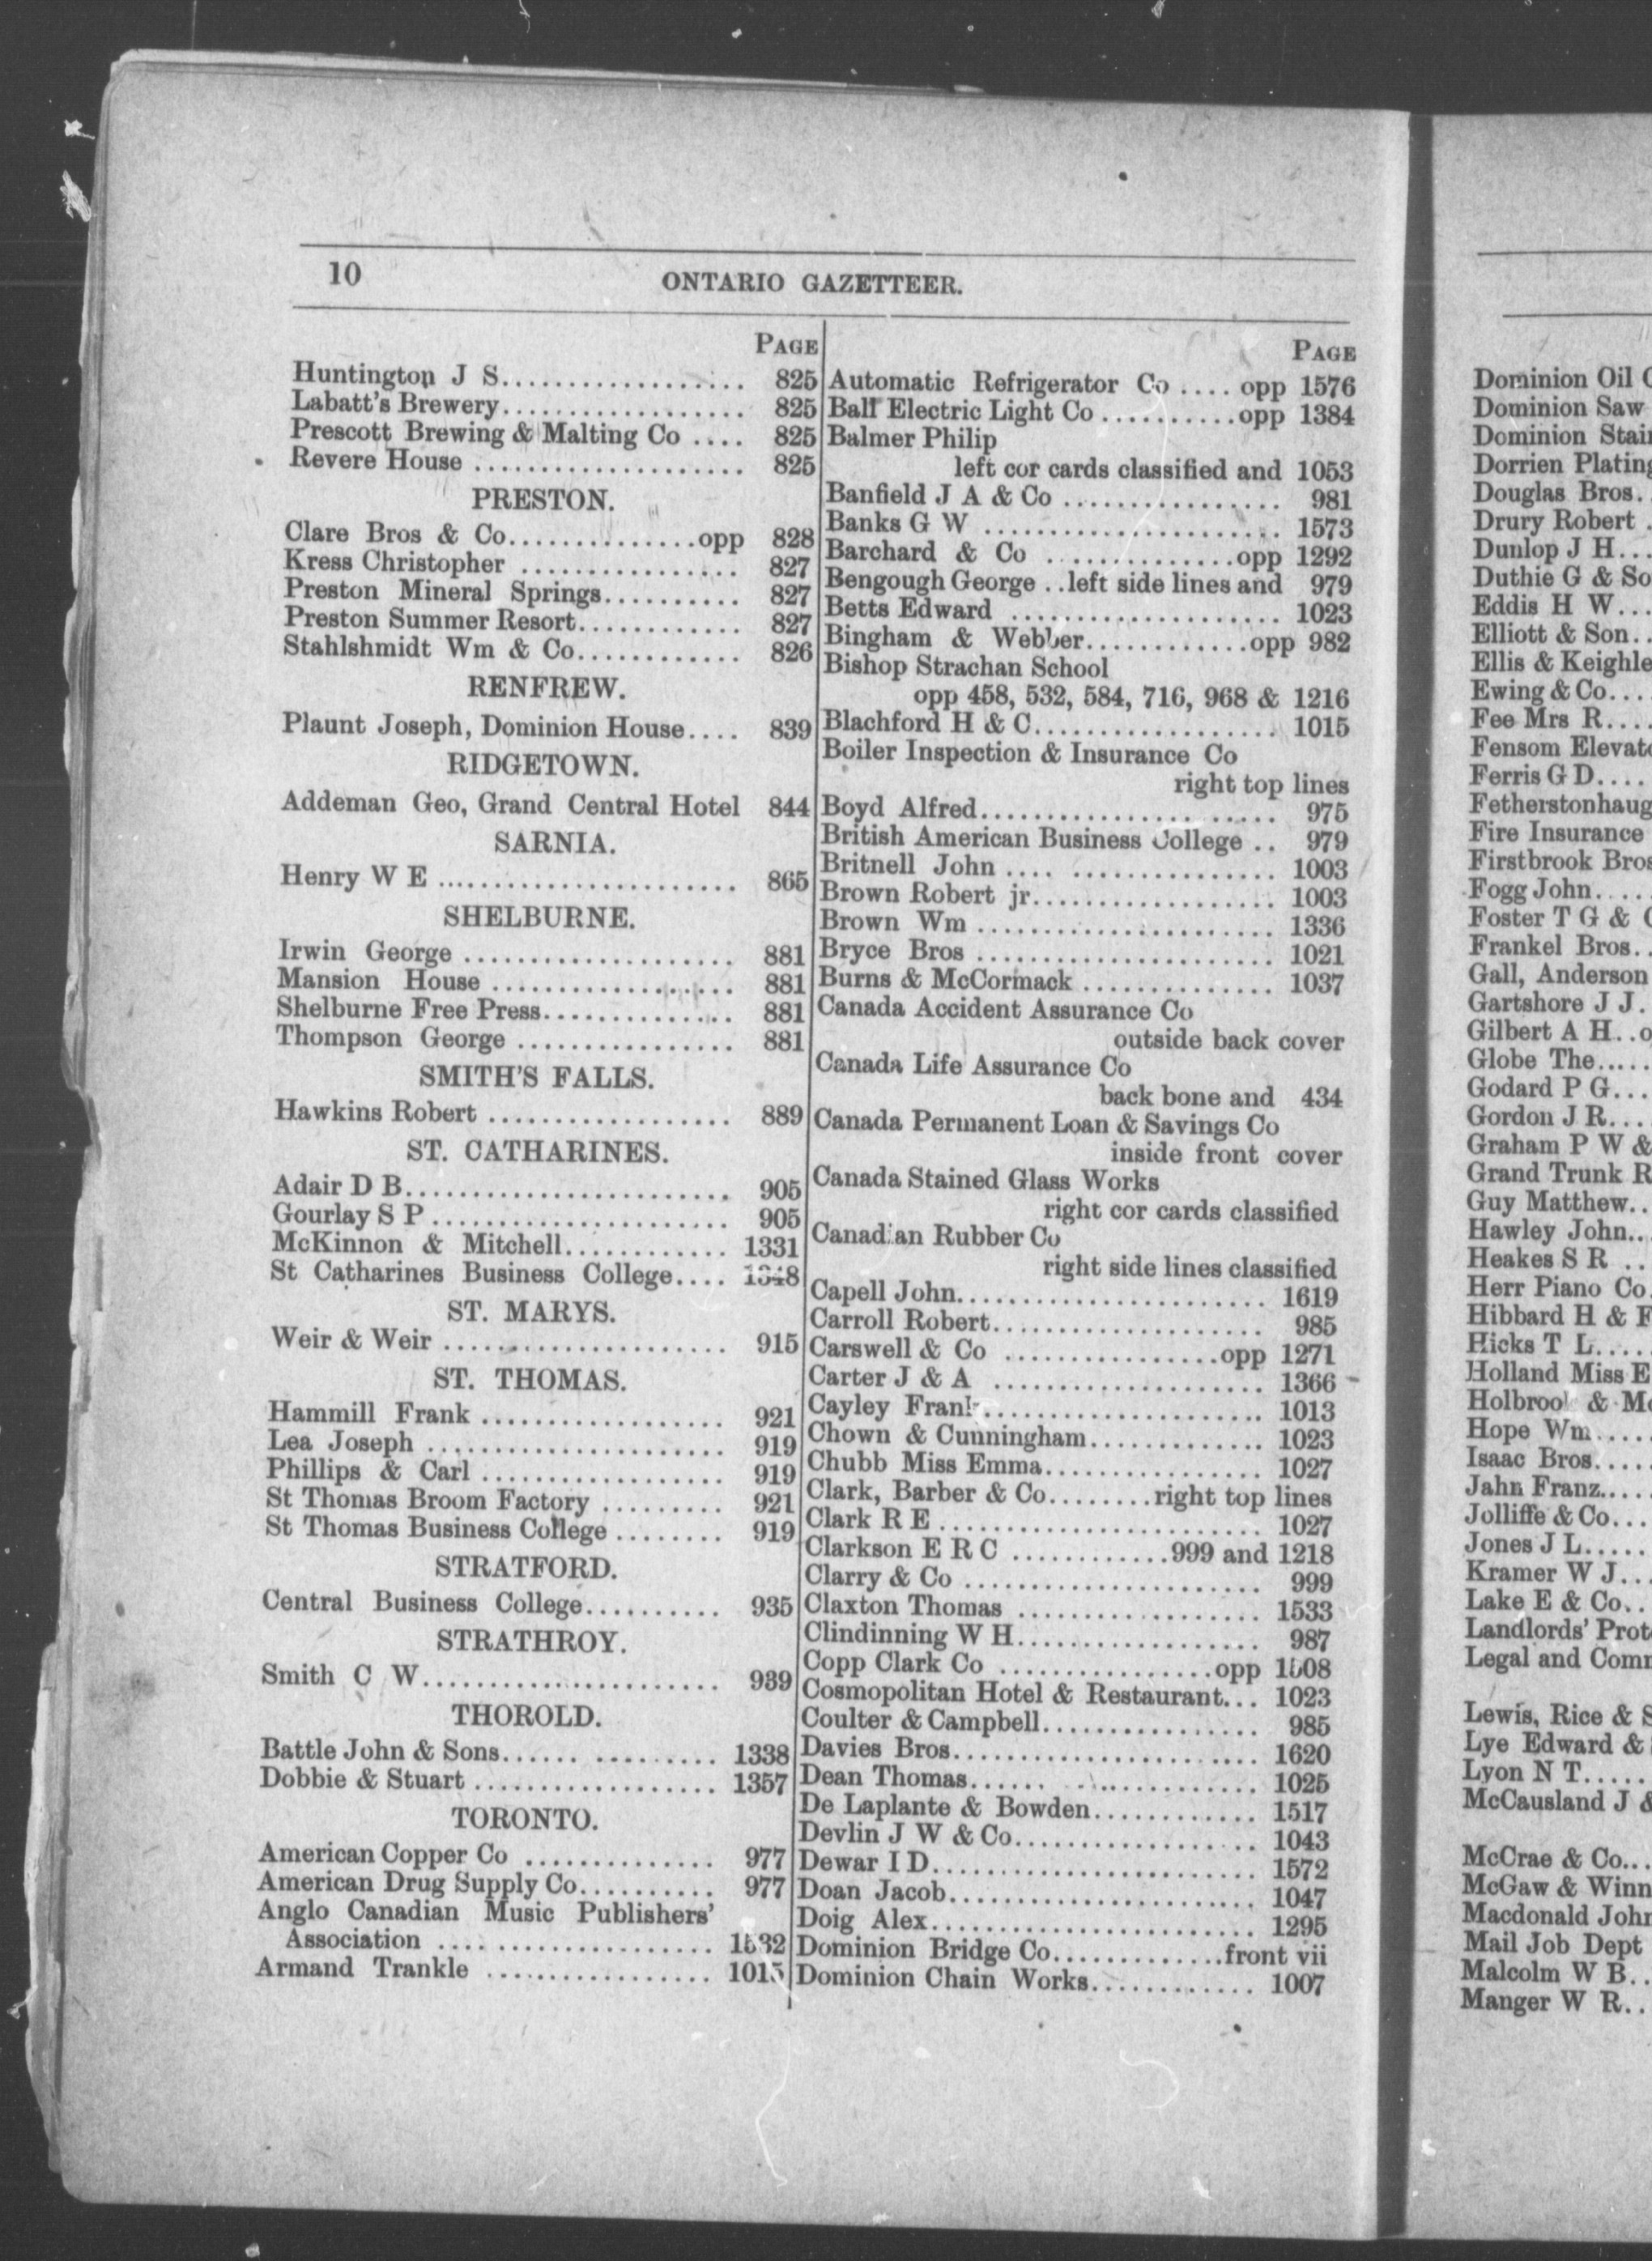 10
ONTARIO GAZETTEER.
PAGE
Huntington J S.................. 825
Labatt's Brewery................. 825
Prescott Brewing & Malting Co .... 825
Revere House .................... 825
PRESTON.
Clare Bros & Co..............opp 828
Kress Christopher ................ 827
Preston Mineral Springs.......... 827
Preston Summer Resort............ 827
Stahlshmidt Wm & Co............ 826
RENFREW.
Plaunt Joseph, Dominion House.... 839
RIDGETOWN.
Addeman Geo, Grand Central Hotel 844
SARNIA.
Henry W E ...................... 865
SHELBURNE.
Irwin George .................... 881
Mansion House .................. 881
Shelburne Free Press.............. 881
Thompson George ................ 881
SMITH'S FALLS.
Hawkins Robert .................. 889
ST. CATHARINES.
Adair D B........................ 905
Gourlay S P...................... 905
McKinnon & Mitchell............ 1331
St Catharines Business College.... 1348
ST. MARYS.
Weir & Weir ..................... 915
ST. THOMAS.
Hammill Frank .................. 921
Lea Joseph ...................... 919
Phillips & Carl .................. 919
St Thomas Broom Factory ......... 921
St Thomas Business College ........ 919
STRATFORD.
Central Business College.......... 935
STRATHROY.
Smith C W...................... 939
THOROLD.
Battle John & Sons...... ......... 1338
Dobbie & Stuart .................. 1357
TORONTO.
American Copper Co .............. 977
American Drug Supply Co.......... 977
Anglo Canadian Music Publishers'
Association ..................... 1532
Armand Trankle ................. 1015
PAGE
Automatic Refrigerator Co .... opp 1576
Ball Electric Light Co ..........opp 1384
Balmer Philip
left cor cards classified and 1053
Banfield J A & Co ................ 981
Banks G W ...................... 1573
Barchard & Co ..............opp 1292
Bengough George ..left side lines and 979
Betts Edward .................... 1023
Bingham & Webber............opp 982
Bishop Strachan School
opp 458, 532, 584, 716, 968 & 1216
Blachford H & C.................. 1015
Boiler Inspection & Insurance Co
right top lines
Boyd Alfred...................... 975
British American Business College .. 979
Britnell John .... ............... 1003
Brown Robert jr.................. 1003
Brown Wm ...................... 1336
Bryce Bros ...................... 1021
Burns & McCormack .............. 1037
Canada Accident Assurance Co
outside back cover
Canada Life Assurance Co
back bone and 434
Canada Permanent Loan & Savings Co
inside front cover
Canada Stained Glass Works
right cor cards classified
Canadian Rubber Co
right side lines classified
Capell John....................... 1619
Carroll Robert.................... 985
Carswell & Co ................opp 1271
Carter J & A .................... 1366
Cayley Frank..................... 1013
Chown & Cunningham............. 1023
Chubb Miss Emma................ 1027
Clark, Barber & Co........right top lines
Clark R E ........................ 1027
Clarkson E R C ............999 and 1218
Clarry & Co ...................... 999
Claxton Thomas .................. 1533
Clindinning W H.................. 987
Copp Clark Co ................opp
Cosmopolitan Hotel & Restaurant... 1023
Coulter & Campbell................ 985
Davies Bros....................... 1620
Dean Thomas...... .............. 1025
De Laplante & Bowden............ 1517
Devlin J W & Co.................. 1043
Dewar I D........................ 1572
Doan Jacob....................... 1047
Doig Alex........................ 1295
Dominion Bridge Co.............front vii
Dominion Chain Works............ 1007
Dominion Oil
Dominion Saw
Dominion
Dorrien Plating
Douglas Bros.
Drury Robert .
Dunlop J H...
Duthie G & So
Eddis H W...
Elliott & Son..
Ellis & Keighle
Ewing & Co...
Fee Mrs R....
Fensom Elevato
Ferris G D....
Fetherstonhaug
Fire Insurance
Firstbrook Bros
Fogg John.....
Foster T G &
Frankel Bros..
Gall, Anderson
Gartshore J J.
Gilbert A H..o
Globe The.....
Godard P G...
Gordon J R...
Graham P W &
Grand Trunk R
Guy Matthew..
Hawley John...
Heakes S R ..
Herr Piano Co.
Hibbard H & F
Hicks T L.....
Holland Miss E
Holbrook & Mc
Hope Wm.....
Isaac Bros....
Jahn Franz....
Jolliffe & Co...
Jones J L.....
Kramer W J...
Lake E & Co..
Landlords' Prote
Legal and Comm
Lewis, Rice & S
Lye Edward &
Lyon N T.....
McCausland J &
McCrae & Co...
McGaw & Winn
Macdonald John
Mail Job Dept
Malcolm W B..
Manger W R..